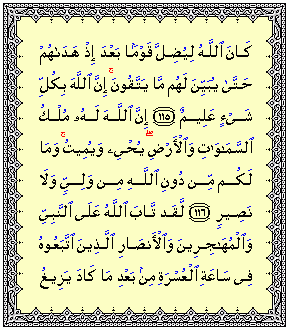 كَانَ ٱللَّهُ لِيُضِلَّ قَوْمَۢا بَعْدَ إِذْ هَدَىٰهُمْ
حَتَّىٰ يُبَيِّنَ لَهُم مَّا يَتَّقُونَ ۚ إِنَّ ٱللَّهَ بِكُلِّ
شَىْءٍ عَلِيمٌ ﴿١١٥﴾ إِنَّ ٱللَّهَ لَهُۥ مُلْكُ
ٱلسَّمَـٰوَٰتِ وَٱلْأَرْضِ ۖ يُحْىِۦ وَيُمِيتُ ۚ وَمَا
لَكُم مِّن دُونِ ٱللَّهِ مِن وَلِىٍّ وَلَا
نَصِيرٍ ﴿١١٦﴾ لَّقَد تَّابَ ٱللَّهُ عَلَى ٱلنَّبِىِّ
وَٱلْمُهَـٰجِرِينَ وَٱلْأَنصَارِ ٱلَّذِينَ ٱتَّبَعُوهُ
فِى سَاعَةِ ٱلْعُسْرَةِ مِنۢ بَعْدِ مَا كَادَ يَزِيغُ